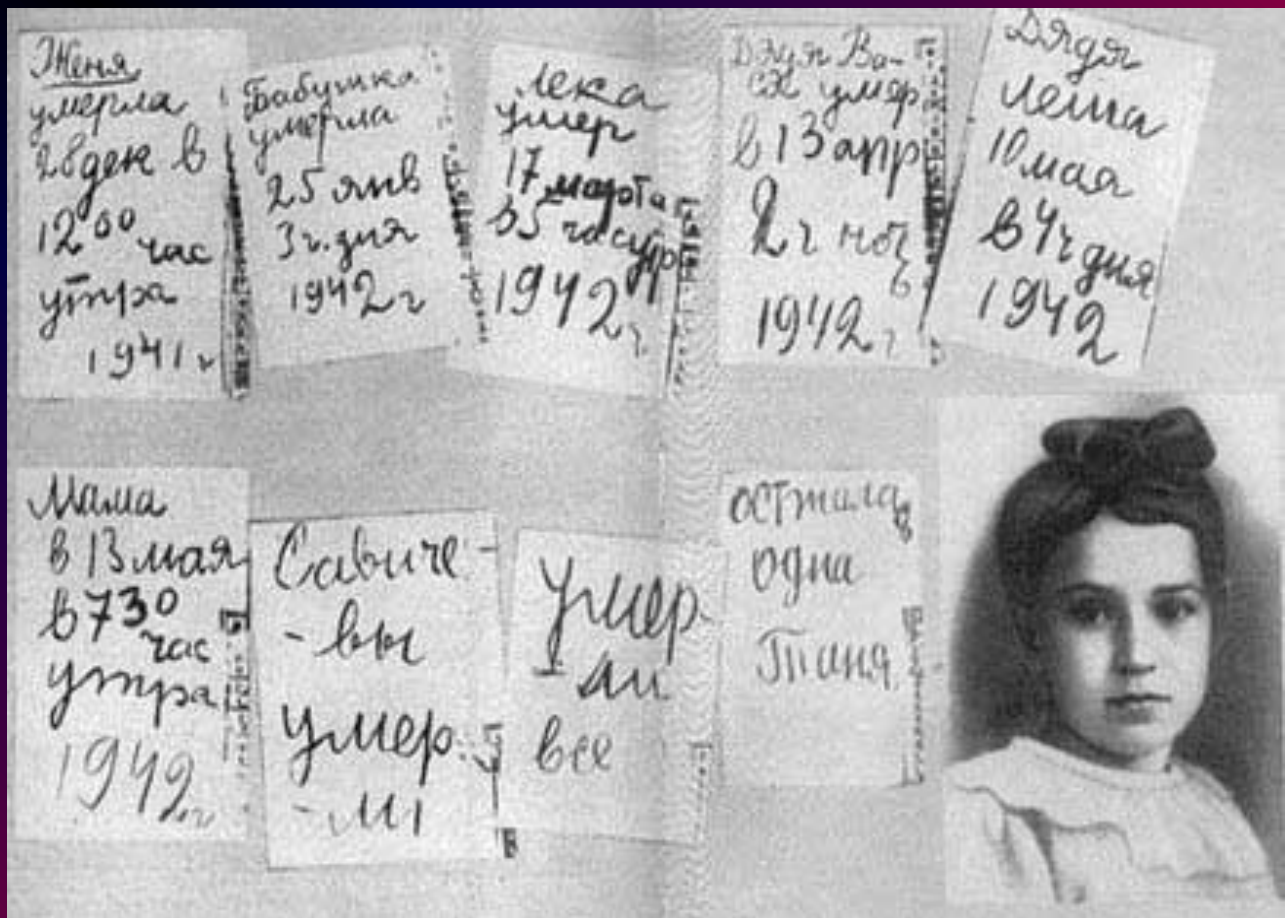 Женя
умерла
28 дек в
12 00 час
утра
1941 г
Бабушка
умерла
25 янв
3 ч. дня
1942 г
Лека
умер
17 марта
в 5 час утр
1942 г.
Дядя Ва-
ся умер
в 13 апр
2 ч ноч
ь
1942 г
Дядя
Леша
10 мая
в 4 ч дня
1942
Мама
в 13 мая
в 7 30
час
утра
1942 г
Савиче-
-вы
умер-
-ли
Умер-
-ли
все
Одна
Таня